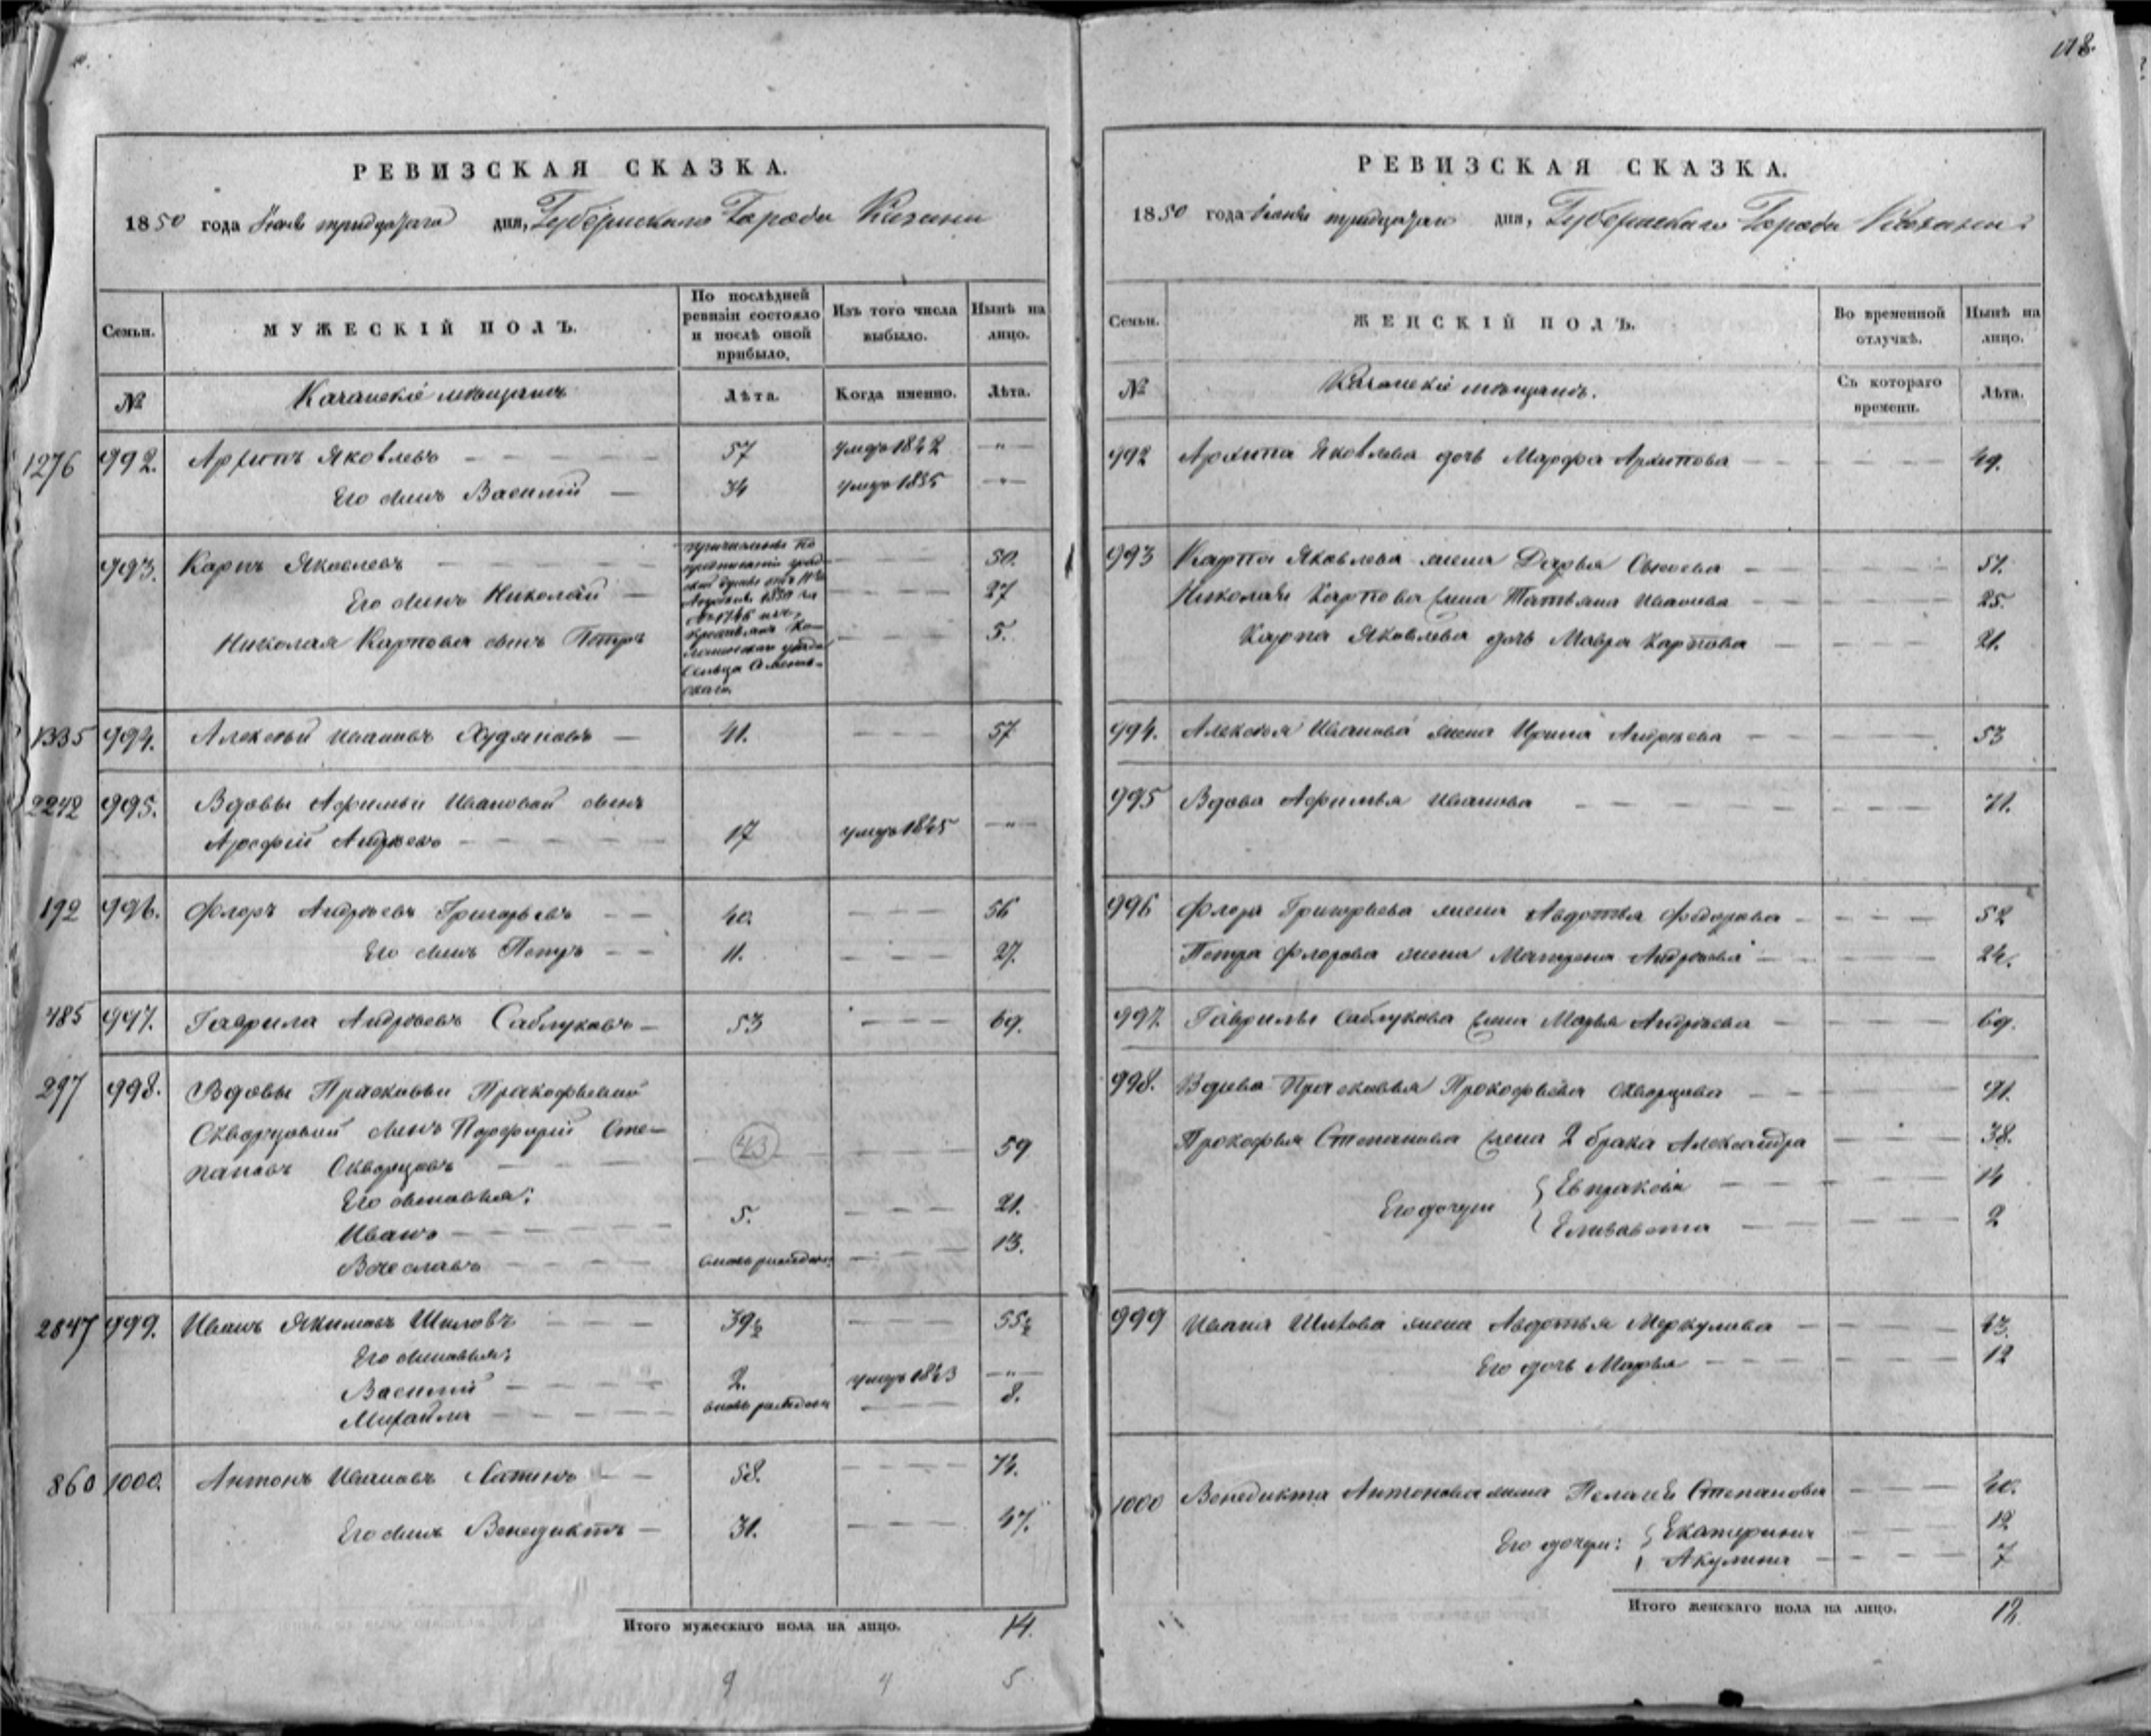 118.
РЕВИЗСКАЯ СКАЗКА.
1850 года дня, Губернскаго Города Казани
Семьи. МУЖЕСКІЙ ПОЛЪ. По послѣдней ревизіи состояло и послѣ оной прибыло. Изъ того числа выбыло. Нынѣ на лицо.
№ Казанскіе мѣщанѣ Лѣта. Когда именно. Лѣта.
1276 992. Архипъ Яковлевъ 57 умеръ 1842 "
Его сынъ Василій 34 умеръ 1835 "
993. Карпъ Яковлевъ 50.
Его сынъ Николай 27
Николая Карпова сынъ Петръ 5.
1335 994. Алексѣй Ивановъ Худяковъ 41. 57
2242 995. Вдовы Афимьи Ивановой сынъ
Арефій Андреевъ 17 умеръ 1845 "
192 996. Флоръ Андреевъ Григорьевъ 40. 56
Его сынъ Петръ 11. 27.
485 997. Гаврила Андреевъ Саблуковъ 53 69.
297 998. Вдовы Прасковьи Прокофьевой
Скворцовой сынъ Порфирій Сте-
пановъ Скворцовъ 43 59
Его сыновья:
Иванъ 5. 21.
Вячеславъ вновь рожденъ 13.
2847 999. Иванъ Якимовъ Шиловъ 39½ 55½
Его сыновья:
Василій 2. умеръ 1843 "
Михайла вновь рожденъ 8.
860 1000. Антонъ Ивановъ Латинъ 58. 74.
Его сынъ Венедиктъ 31. 47.
Итого мужескаго пола на лицо. 14.
9 4 5
РЕВИЗСКАЯ СКАЗКА.
1850 года дня, Губернскаго Города Казани
Семьи. ЖЕНСКІЙ ПОЛЪ. Во временной отлучкѣ. Нынѣ на лицо.
№ Казанскіе мѣщанѣ. Съ котораго времени. Лѣта.
992 Архипа Яковлева дочь Марфа Архипова 49.
993 Карпа Яковлева жена Дарья 51.
Николая Карпова жена Татьяна Иванова 25.
Карпа Яковлева дочь Мавра Карпова 21.
994. Алексѣя Иванова жена Ирина Андреева 53
995 Вдова Афимья Иванова 71.
996 Флора Григорьева жена Авдотья Федорова 52
Петра Флорова жена Матрена Андреева 24.
997. Гаврилы Саблукова жена Марья Андреева 69.
998. Вдова Прасковья Прокофьева Скворцова 91.
Прокофья Степанова жена 2 брака Александра 38.
Его дочери { Евпраксія 14
Елизавета 2
999 Ивана Шилова жена Авдотья Меркулова 43.
Его дочь Марья 12
1000 Венедикта Антонова жена Пелагея Степанова 40.
Его дочери: { Екатерина 12
Акулина 7
Итого женскаго пола на лицо.